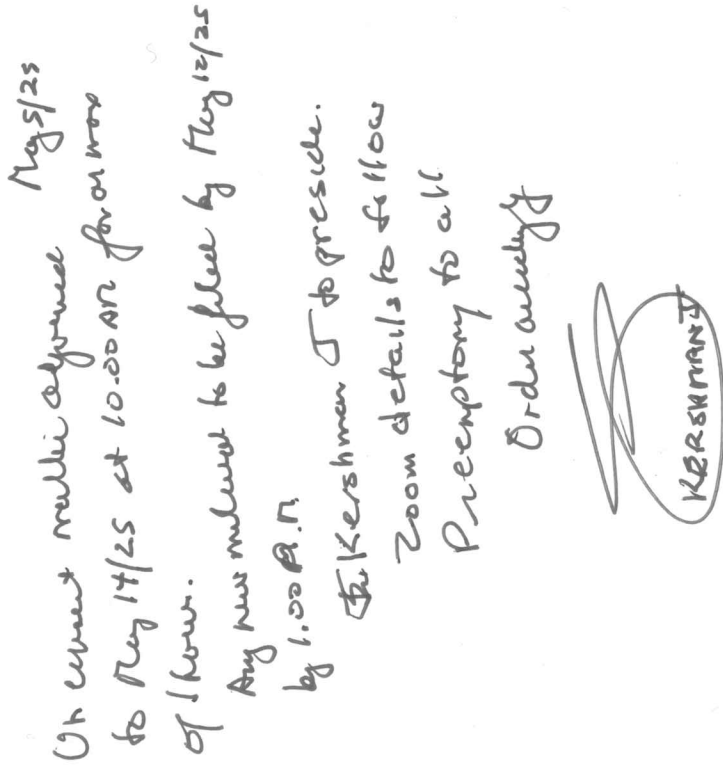 May 5/25
On consent matter adjourned
to May 14/25 at 10.00 AM for a max
of 1 hour.
Any new material to be filed by May 12/25
by 1.00 P.M.
Kershman J to preside.
Zoom details to follow
Preemptory to all
Order accordingly
KERSHMAN J